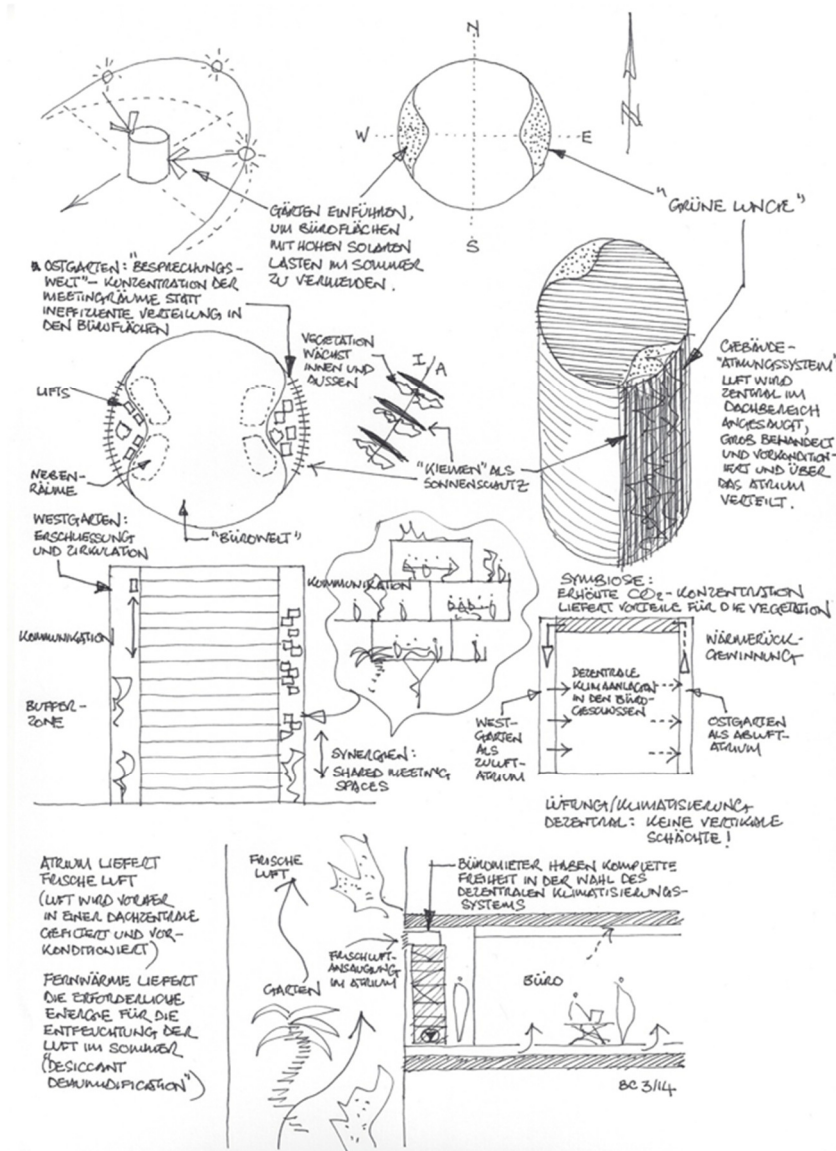 N
W
E
S
N
GÄRTEN EINFÜHREN,
UM BÜROFLÄCHEN
MIT HOHEN SOLAREN
LASTEN IM SOMMER
ZU VERMEIDEN.
"GRÜNE LUNGE"
OSTGARTEN: "BESPRECHUNGS-
WELT" - KONZENTRATION DER
MEETINGRÄUME STATT
INEFFIZIENTE VERTEILUNG IN
DEN BÜROFLÄCHEN
VEGETATION
WÄCHST
INNEN UND
AUSSEN
I/A
LIFTS
NEBEN-
RÄUME
"KIEMEN" ALS
SONNENSCHUTZ
GEBÄUDE-
"ATMUNGSSYSTEM"
LUFT WIRD
ZENTRAL IM
DACHBEREICH
ANGESAUGT,
GROB BEHANDELT
UND VORKONDITION-
IERT UND ÜBER
DAS ATRIUM
VERTEILT.
WESTGARTEN:
ERSCHLIESSUNG
UND ZIRKULATION
"BÜROWELT"
KOMMUNIKATION
KOMMUNIKATION
BUFFER-
ZONE
SYNERGIEN:
SHARED MEETING
SPACES
SYMBIOSE:
ERHÖHTE CO2-KONZENTRATION
LIEFERT VORTEILE FÜR DIE VEGETATION
WÄRMERÜCK-
GEWINNUNG
DEZENTRALE
KLIMAANLAGEN
IN DEN BÜRO-
GESCHOSSEN
WEST-
GARTEN
ALS
ZULUFT-
ATRIUM
OSTGARTEN
ALS ABLUFT-
ATRIUM
LÜFTUNG/KLIMATISIERUNG
DEZENTRAL: KEINE VERTIKALE
SCHÄCHTE!
ATRIUM LIEFERT
FRISCHE LUFT
(LUFT WIRD VORHER
IN EINER DACHZENTRALE
GEFILTERT UND VOR-
KONDITIONIERT)
FERNWÄRME LIEFERT
DIE ERFORDERLICHE
ENERGIE FÜR DIE
ENTFEUCHTUNG DER
LUFT IM SOMMER
("DESICCANT
DEHUMIDIFICATION")
FRISCHE
LUFT
GARTEN
BÜROMIETER HABEN KOMPLETTE
FREIHEIT IN DER WAHL DES
DEZENTRALEN KLIMATISIERUNGS-
SYSTEMS
FRISCHLUFT-
ANSAUGUNG
IM ATRIUM
BÜRO
BC 3/14